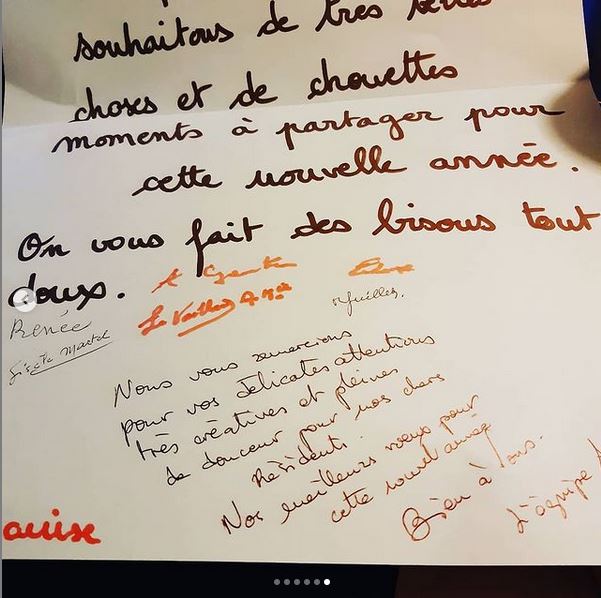 souhaitons de très belles
choses et de chouettes
moments à partager pour
cette nouvelle année.
On vous fait des bisous tout
doux.
Renée
Gisèle Martel
Nous vous remercions
pour vos délicates attentions
très créatives et pleines
de douceur pour nos chers
Résidents.
Nos meilleurs vœux pour
cette nouvel année
Bien à vous.
L'équipe